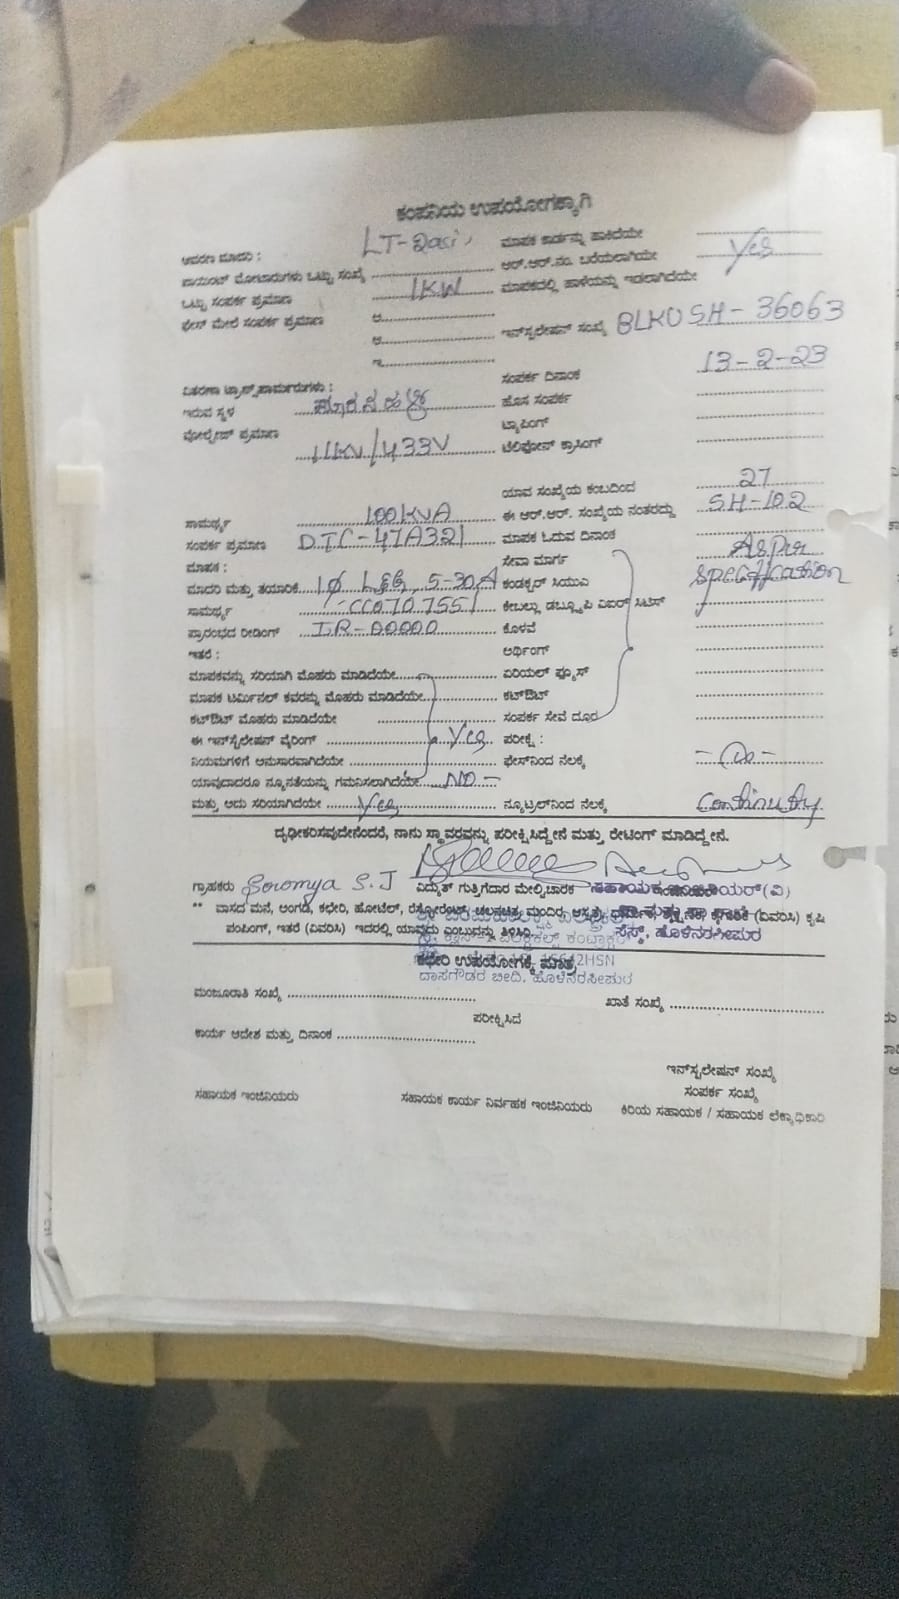 ಕಂಪನಿಯ ಉಪಯೋಗಕ್ಕಾಗಿ
ಆವರಣ ಮಾದರಿ : LT- ಮಾಪಕ ಕಾರ್ಡನ್ನು ಹಾಕಿದೆಯೇ
ಪಾಯಿಂಟ್ ಮೋಟಾರುಗಳು ಒಟ್ಟು ಸಂಖ್ಯೆ ಆರ್.ಆರ್.ನಂ. ಬರೆಯಲಾಗಿಯೇ Yes
ಒಟ್ಟು ಸಂಪರ್ಕ ಪ್ರಮಾಣ 1KW ಮಾಪಕದಲ್ಲಿ ಹಾಳೆಯನ್ನು ಇಡಲಾಗಿದೆಯೇ
ಫೇಸ್ ಮೇಲೆ ಸಂಪರ್ಕ ಪ್ರಮಾಣ ಅ.
ಆ. ಇನ್‌ಸ್ಟಲೇಷನ್ ಸಂಖ್ಯೆ BLKUSH-36063
ಇ.
ಸಂಪರ್ಕ ದಿನಾಂಕ 13-2-23
ವಿತರಣಾ ಟ್ರಾನ್ಸ್‌ಫಾರ್ಮರುಗಳು :
ಇರುವ ಸ್ಥಳ ಹೊಸ ಸಂಪರ್ಕ
ವೋಲ್ಟೇಜ್ ಪ್ರಮಾಣ ಟ್ಯಾಪಿಂಗ್
11KV/433V ಟೆಲಿಫೋನ್ ಕ್ರಾಸಿಂಗ್
ಯಾವ ಸಂಖ್ಯೆಯ ಕಂಬದಿಂದ 27
ಸಾಮರ್ಥ್ಯ 100KVA ಈ ಆರ್.ಆರ್. ಸಂಖ್ಯೆಯ ನಂತರದ್ದು SH-102
ಸಂಪರ್ಕ ಪ್ರಮಾಣ DTC-47A321 ಮಾಪಕ ಓದುವ ದಿನಾಂಕ
ಮಾಪಕ : ಸೇವಾ ಮಾರ್ಗ As per
ಮಾದರಿ ಮತ್ತು ತಯಾರಿಕೆ 1Ø L&G, 5-30A ಕಂಡಕ್ಟರ್ ಸಿಯುಎ specification
ಸಾಮರ್ಥ್ಯ ಕೇಬಲ್ಲು ಡಬ್ಲ್ಯೂಪಿ ವಿಐಆರ್ ಸಿಟಿಸ್
ಪ್ರಾರಂಭದ ರೀಡಿಂಗ್ IR-00000 ಕೊಳವೆ
ಇತರೆ : ಅರ್ಥಿಂಗ್
ಮಾಪಕವನ್ನು ಸರಿಯಾಗಿ ಮೊಹರು ಮಾಡಿದೆಯೇ ಏರಿಯಲ್ ಫ್ಯೂಸ್
ಮಾಪಕ ಟರ್ಮಿನಲ್ ಕವರನ್ನು ಮೊಹರು ಮಾಡಿದೆಯೇ ಕಟ್‌ಔಟ್
ಕಟ್‌ಔಟ್ ಮೊಹರು ಮಾಡಿದೆಯೇ ಸಂಪರ್ಕ ಸೇವೆ ದೂರ
ಈ ಇನ್‌ಸ್ಟಲೇಷನ್ ವೈರಿಂಗ್ Yes ಪರೀಕ್ಷೆ :
ನಿಯಮಗಳಿಗೆ ಅನುಸಾರವಾಗಿದೆಯೇ ಫೇಸ್‌ನಿಂದ ನೆಲಕ್ಕೆ
ಯಾವುದಾದರೂ ನ್ಯೂನತೆಯನ್ನು ಗಮನಿಸಲಾಗಿದೆಯೇ NO -
ಮತ್ತು ಅದು ಸರಿಯಾಗಿದೆಯೇ Yes ನ್ಯೂಟ್ರಲ್‌ನಿಂದ ನೆಲಕ್ಕೆ Continuty
ದೃಢೀಕರಿಸವುದೇನೆಂದರೆ, ನಾನು ಸ್ಥಾವರವನ್ನು ಪರೀಕ್ಷಿಸಿದ್ದೇನೆ ಮತ್ತು ರೇಟಿಂಗ್ ಮಾಡಿದ್ದೇನೆ.
ಗ್ರಾಹಕರು Soromya S.J ವಿದ್ಯುತ್ ಗುತ್ತಿಗೆದಾರ ಮೇಲ್ವಿಚಾರಕ
** ವಾಸದ ಮನೆ, ಅಂಗಡಿ, ಕಛೇರಿ, ಹೋಟೆಲ್, ರೆಸ್ಟೋರೆಂಟ್, ಚಲನಚಿತ್ರ ಮಂದಿರ, ಆಸ್ಪತ್ರೆ, (ವಿವರಿಸಿ) ಕೃಷಿ
ಪಂಪಿಂಗ್, ಇತರೆ (ವಿವರಿಸಿ) ಇದರಲ್ಲಿ ಯಾವುದು ಎಂಬುವನ್ನು ತಿಳಿಸಿರಿ. ಸೆಸ್ಕ್, ಹೊಳೆನರಸೀಪುರ
ಕಛೇರಿ ಉಪಯೋಗಕ್ಕೆ ಮಾತ್ರ
ದಾಸಗೌಡರ ಬೀದಿ, ಹೊಳೆನರಸೀಪುರ
ಮಂಜೂರಾತಿ ಸಂಖ್ಯೆ ಖಾತೆ ಸಂಖ್ಯೆ
ಪರೀಕ್ಷಿಸಿದೆ
ಕಾರ್ಯ ಆದೇಶ ಮತ್ತು ದಿನಾಂಕ
ಇನ್‌ಸ್ಟಲೇಷನ್ ಸಂಖ್ಯೆ
ಸಂಪರ್ಕ ಸಂಖ್ಯೆ
ಸಹಾಯಕ ಇಂಜಿನಿಯರು ಸಹಾಯಕ ಕಾರ್ಯ ನಿರ್ವಹಕ ಇಂಜಿನಿಯರು ಕಿರಿಯ ಸಹಾಯಕ / ಸಹಾಯಕ ಲೆಕ್ಕಾಧಿಕಾರಿ